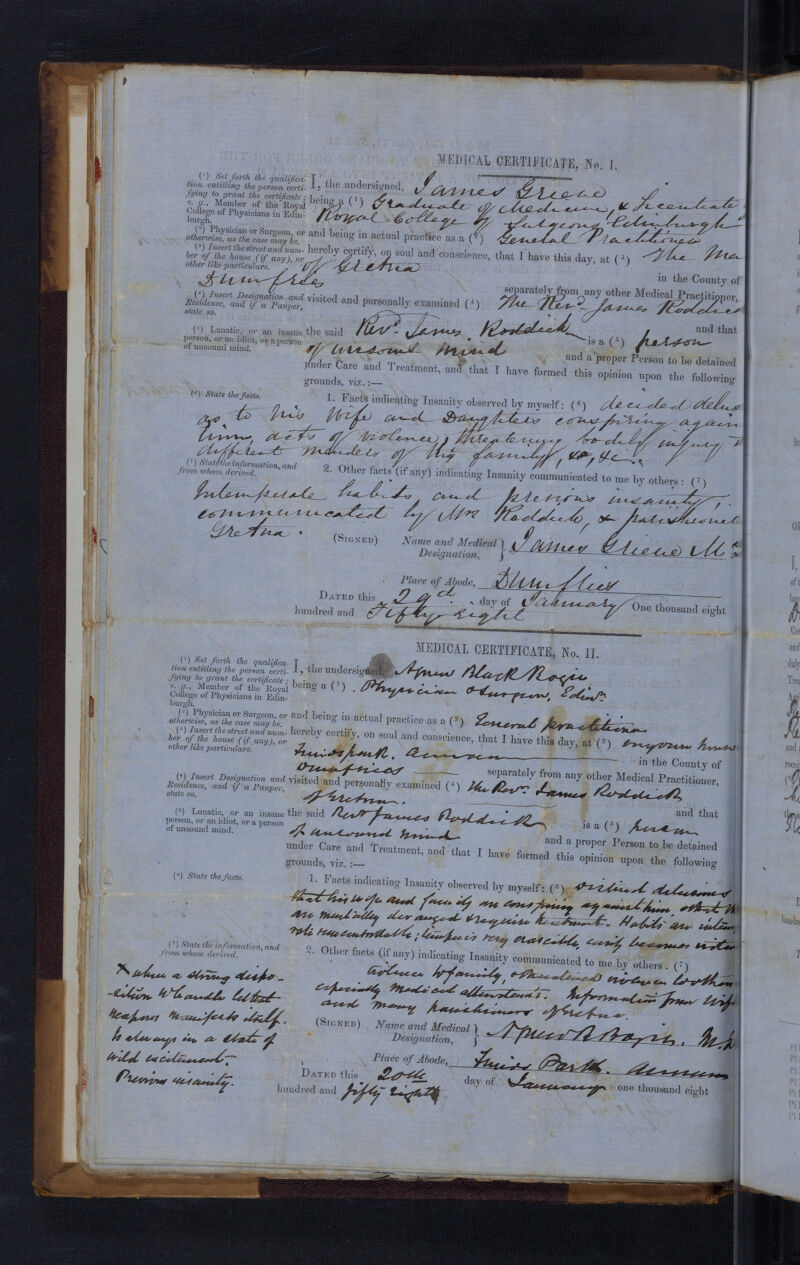 MEDICAL CERTIFICATE, No. I.
(¹) Set forth the qualifica-
tion entitling the person certi-
fying to grant the certificate;
e. g., Member of the Royal
College of Physicians in Edin-
burgh.
I, the undersigned, James Grieve
being a (¹) Graduate of Medicine, & Licentiate
Royal College of Surgeons Edinburgh
(²) Physician or Surgeon, or
otherwise, as the case may be.
and being in actual practice as a (²) General Practitioner
(³) Insert the street and num-
ber of the house (if any), or
other like particulars.
hereby certify, on soul and conscience, that I have this day, at (³) The Man
of Gretna in the County of
Dumfries separately from any other Medical Practitioner,
(⁴) Insert Designation and
Residence, and if a Pauper,
state so.
visited and personally examined (⁴) The Revd. James Roddick
(⁵) Lunatic, or an insane
person, or an idiot, or a person
of unsound mind.
the said Revd. James Roddick is a (⁵) person and that
of unsound mind and a proper Person to be detained
under Care and Treatment, and that I have formed this opinion upon the following
grounds, viz.:—
(⁶) State the facts.
1. Facts indicating Insanity observed by myself: (⁶) decided delus
as to his Wife and Daughters conspiring again
him, acts of violence, threatening bodily injury to
different members of his family, &c, &c.
(⁷) State the information, and
from whom derived.
2. Other facts (if any) indicating Insanity communicated to me by others: (⁷)
Intemperate habits, and previous insanity,
communicated by Mrs Roddick, & parishioners
Gretna.
(SIGNED) Name and Medical Designation, } James Grieve M.D
Place of Abode, Dumfries
DATED this 29th day of January One thousand eight
hundred and Fifty eight
MEDICAL CERTIFICATE, No. II.
(¹) Set forth the qualifica-
tion entitling the person certi-
fying to grant the certificate;
e. g., Member of the Royal
College of Physicians in Edin-
burgh.
I, the undersigned, Agnew Black Rogie
being a (¹). Physician & Surgeon, Edinr.
(²) Physician or Surgeon, or
otherwise, as the case may be.
and being in actual practice as a (²) General practitioner
(³) Insert the street and num-
ber of the house (if any), or
other like particulars.
hereby certify, on soul and conscience, that I have this day, at (³) my own house
park. Annan in the County of
Dumfries separately from any other Medical Practitioner,
(⁴) Insert Designation and
Residence, and if a Pauper,
state so.
visited and personally examined (⁴) the Revd. James Roddick
of Gretna.
(⁵) Lunatic, or an insane
person, or an idiot, or a person
of unsound mind.
the said Revd James Roddick is a (⁵) person and that
of unsound mind and a proper Person to be detained
under Care and Treatment, and that I have formed this opinion upon the following
grounds, viz.:—
(⁶) State the facts.
1. Facts indicating Insanity observed by myself: (⁶) distinct delusions
that his wife and family are conspiring against him, & that th
are mentally deranged & require treatment. Habits are intem
rate uncontrollable; temper is very irascible, easily becomes
(⁷) State the information, and
from whom derived.
2. Other facts (if any) indicating Insanity communicated to me by others. (⁷)
violence to family, violence to others
especially medical attendants. Information from wife
and many parishioners of Gretna.
X when a strong dispo-
-sition to handle lethal
weapons manifests itself.
Is always in a state of
wild excitement.
Previous insanity.
(SIGNED) Name and Medical Designation, } Agnew B Rogie. M.D
Place of Abode, Park. Annan
DATED this 20th day of January one thousand eight
hundred and fifty eight